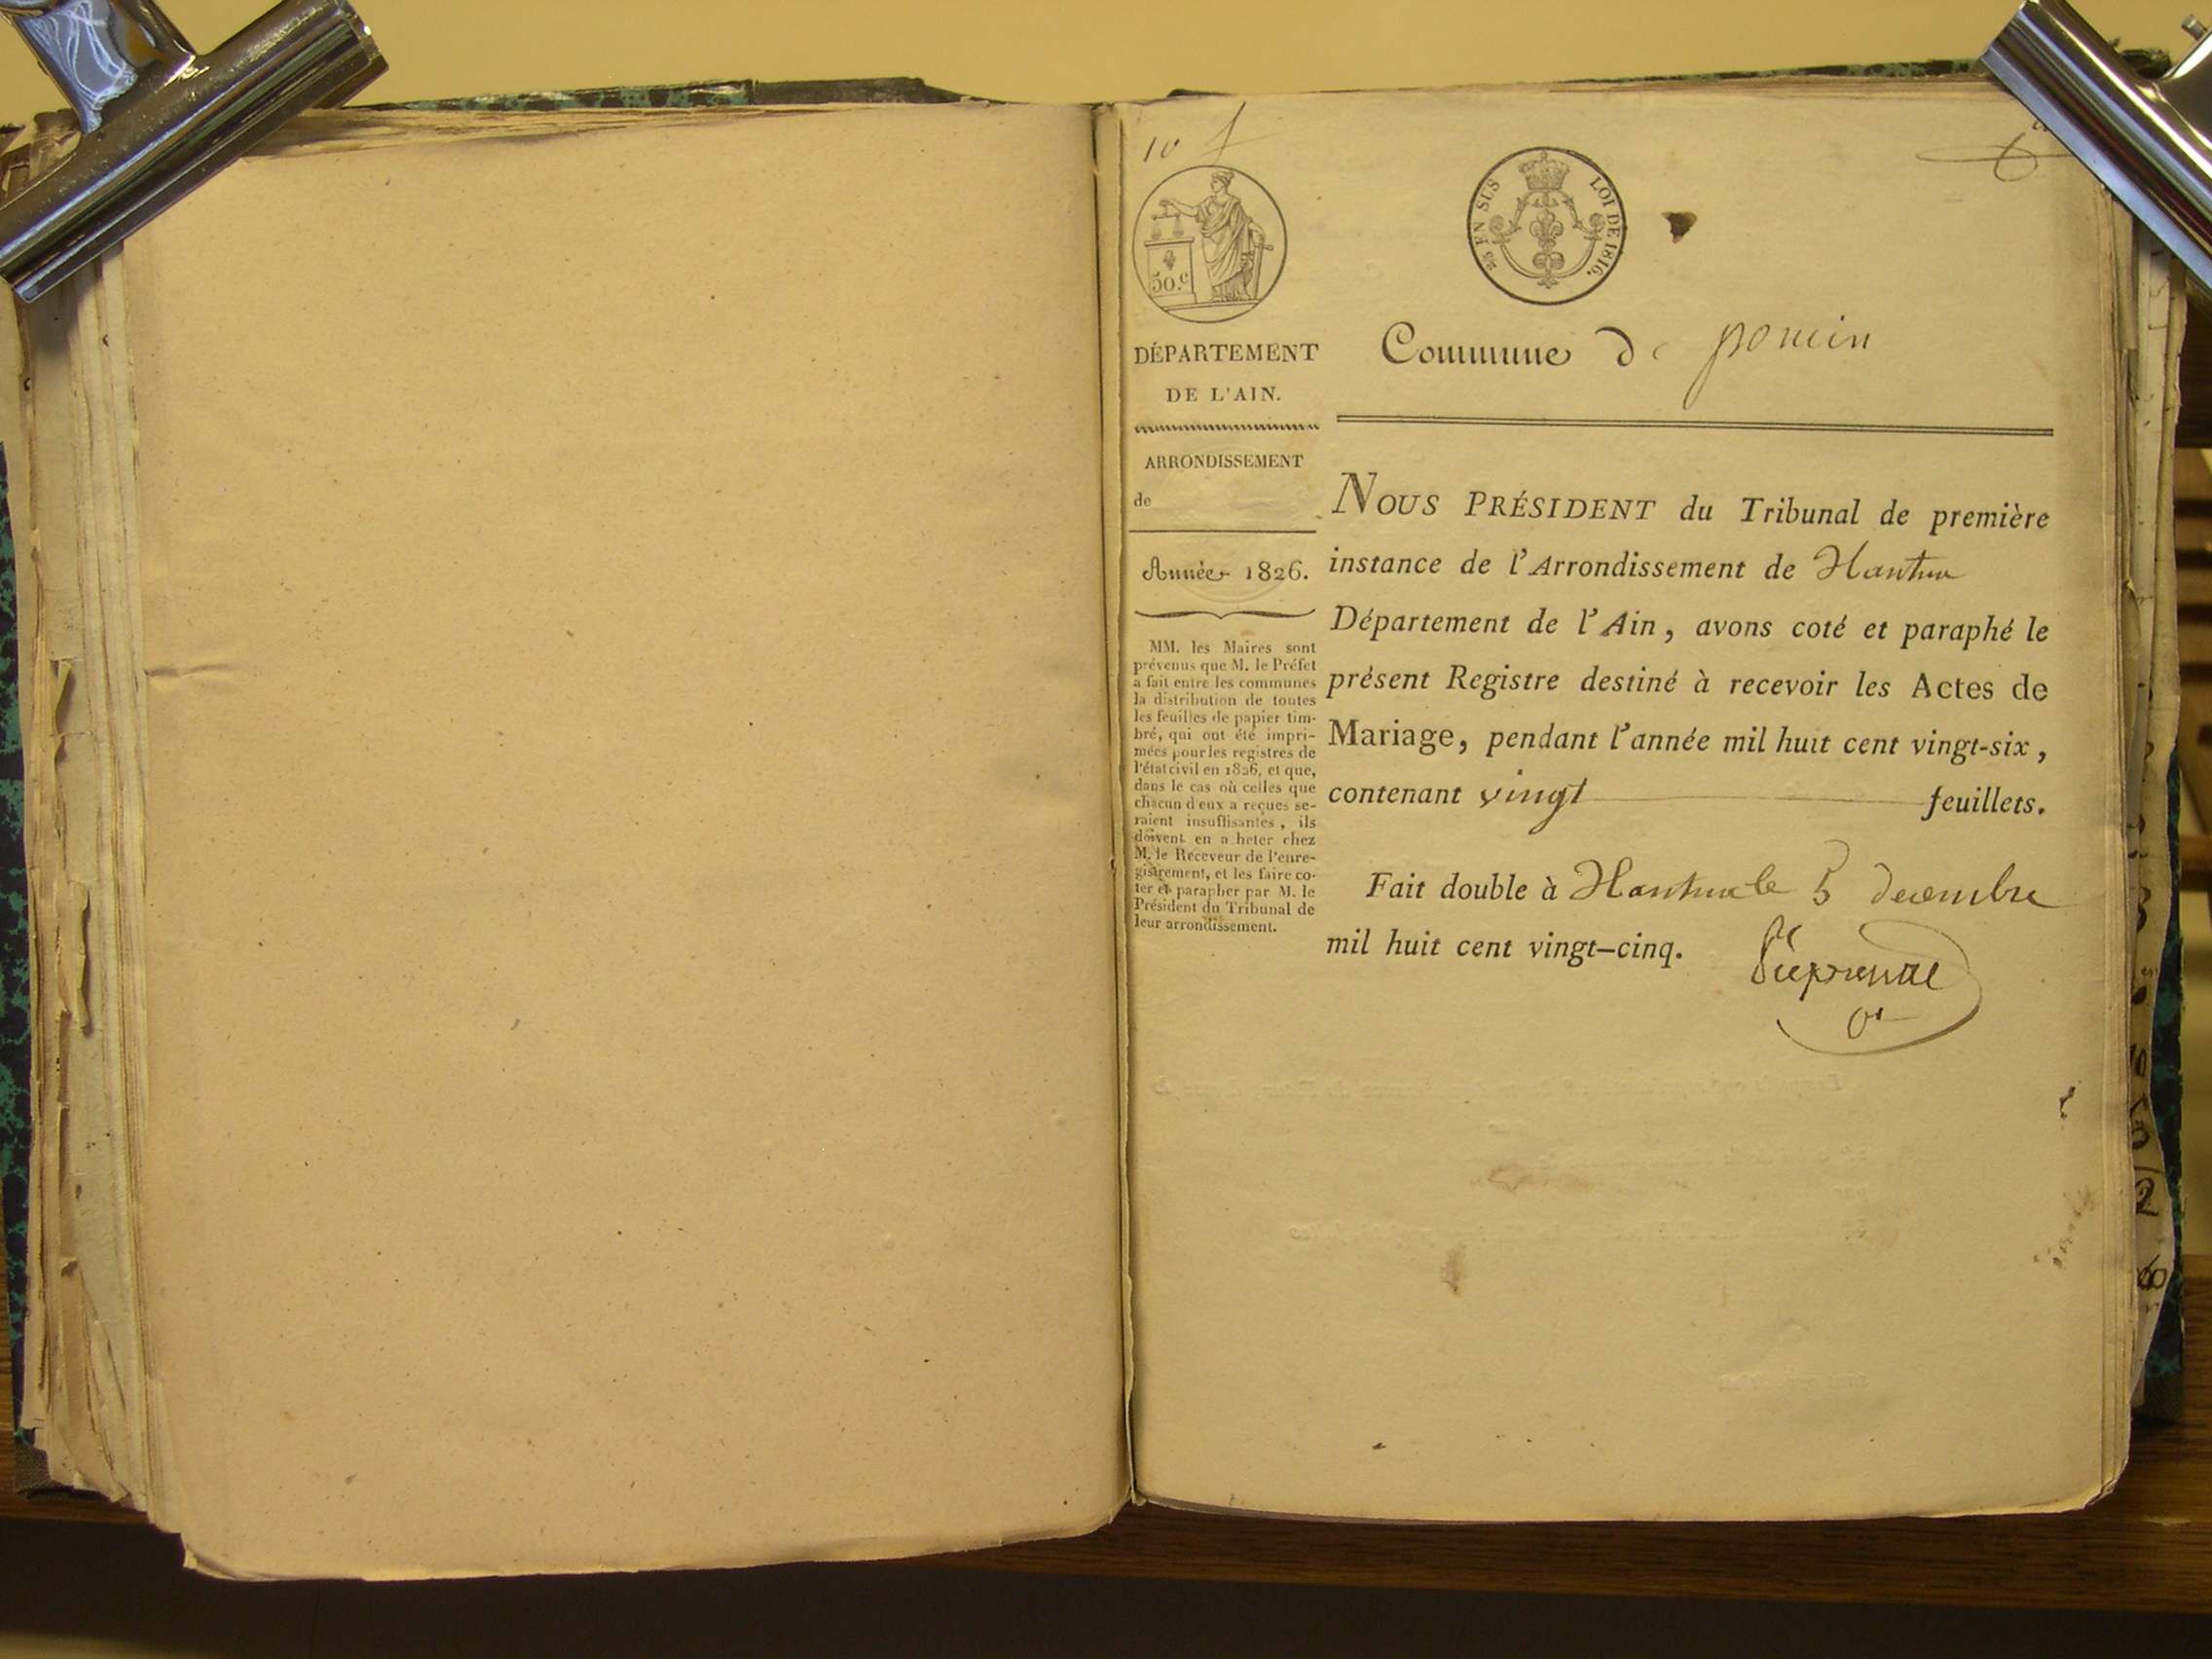 10 f
50.c
2/10 EN SUS LOI DE 1816.
DÉPARTEMENT
DE L'AIN.
ARRONDISSEMENT
de
Année 1826.
MM. les Maires sont
prévenus que M. le Préfet
a fait entre les communes
la distribution de toutes
les feuilles de papier tim-
bré, qui ont été impri-
mées pour les registres de
l'état civil en 1826, et que,
dans le cas où celles que
chacun d'eux a reçues se-
raient insuffisantes, ils
doivent en a heter chez
M. le Receveur de l'enre-
gistrement, et les faire co-
ter et parapher par M. le
Président du Tribunal de
leur arrondissement.
Commune de poncin
NOUS PRÉSIDENT du Tribunal de première
instance de l'Arrondissement de Nantua
Département de l'Ain, avons coté et paraphé le
présent Registre destiné à recevoir les Actes de
Mariage, pendant l'année mil huit cent vingt-six,
contenant vingt feuillets.
Fait double à Nantua le 5 decembre
mil huit cent vingt-cinq.